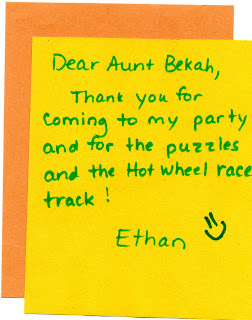 Dear Aunt Bekah,
Thank you for
coming to my party
and for the puzzles
and the Hot Wheel race
track!
Ethan